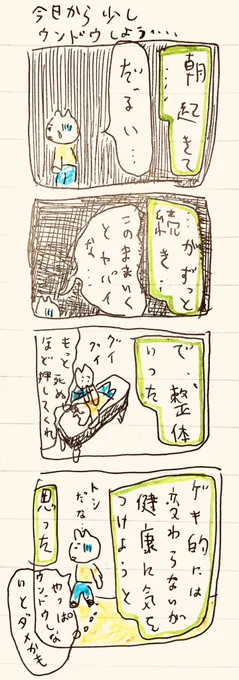 今日から少し
ウンドウしよう・・・・
朝起きて
・・・・
だるい・・・
・・・がずっと
続き・・・
このままいく
とヤバイ
な・・・
で、整体
いった
グイ
グイ
もっと死ぬ
ほど押してくれ
ゲキ的には
変わらないが
健康に気を
つけよ・・・うと
思った
トシ
だな・・・
やっぱ
ウンドウしな
いとダメかも